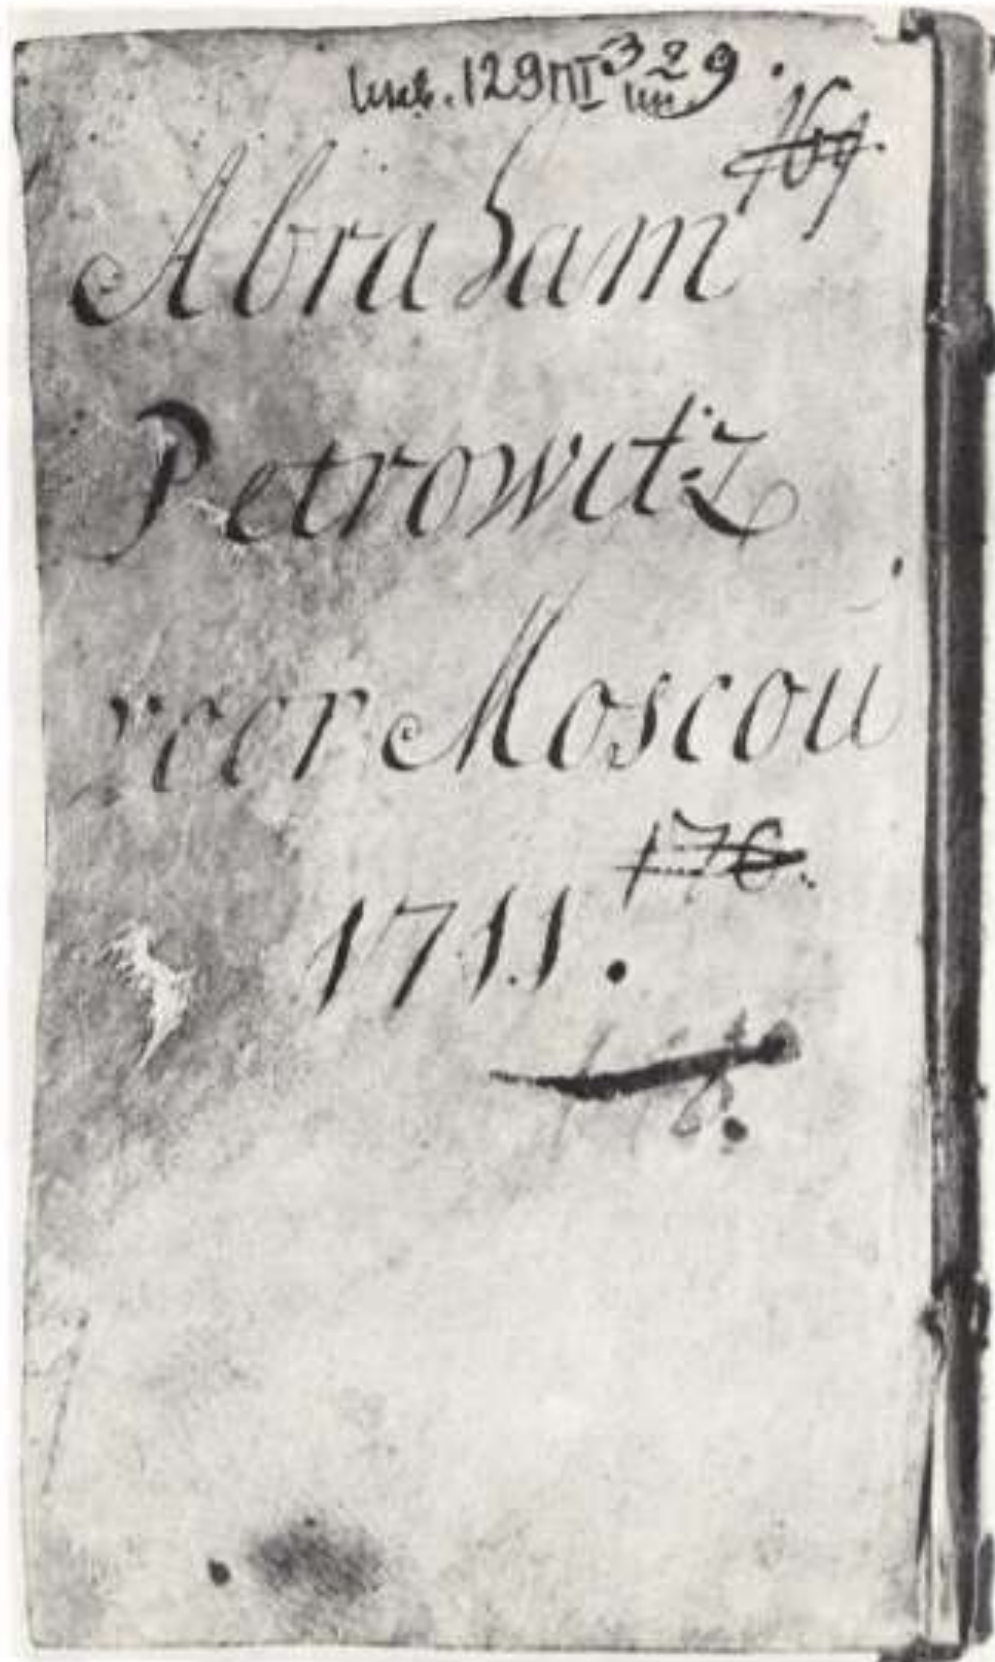 Инв. 129ПІ 329.
169.
Abraham
Petrowitz
voor Moscou
176.
1711.